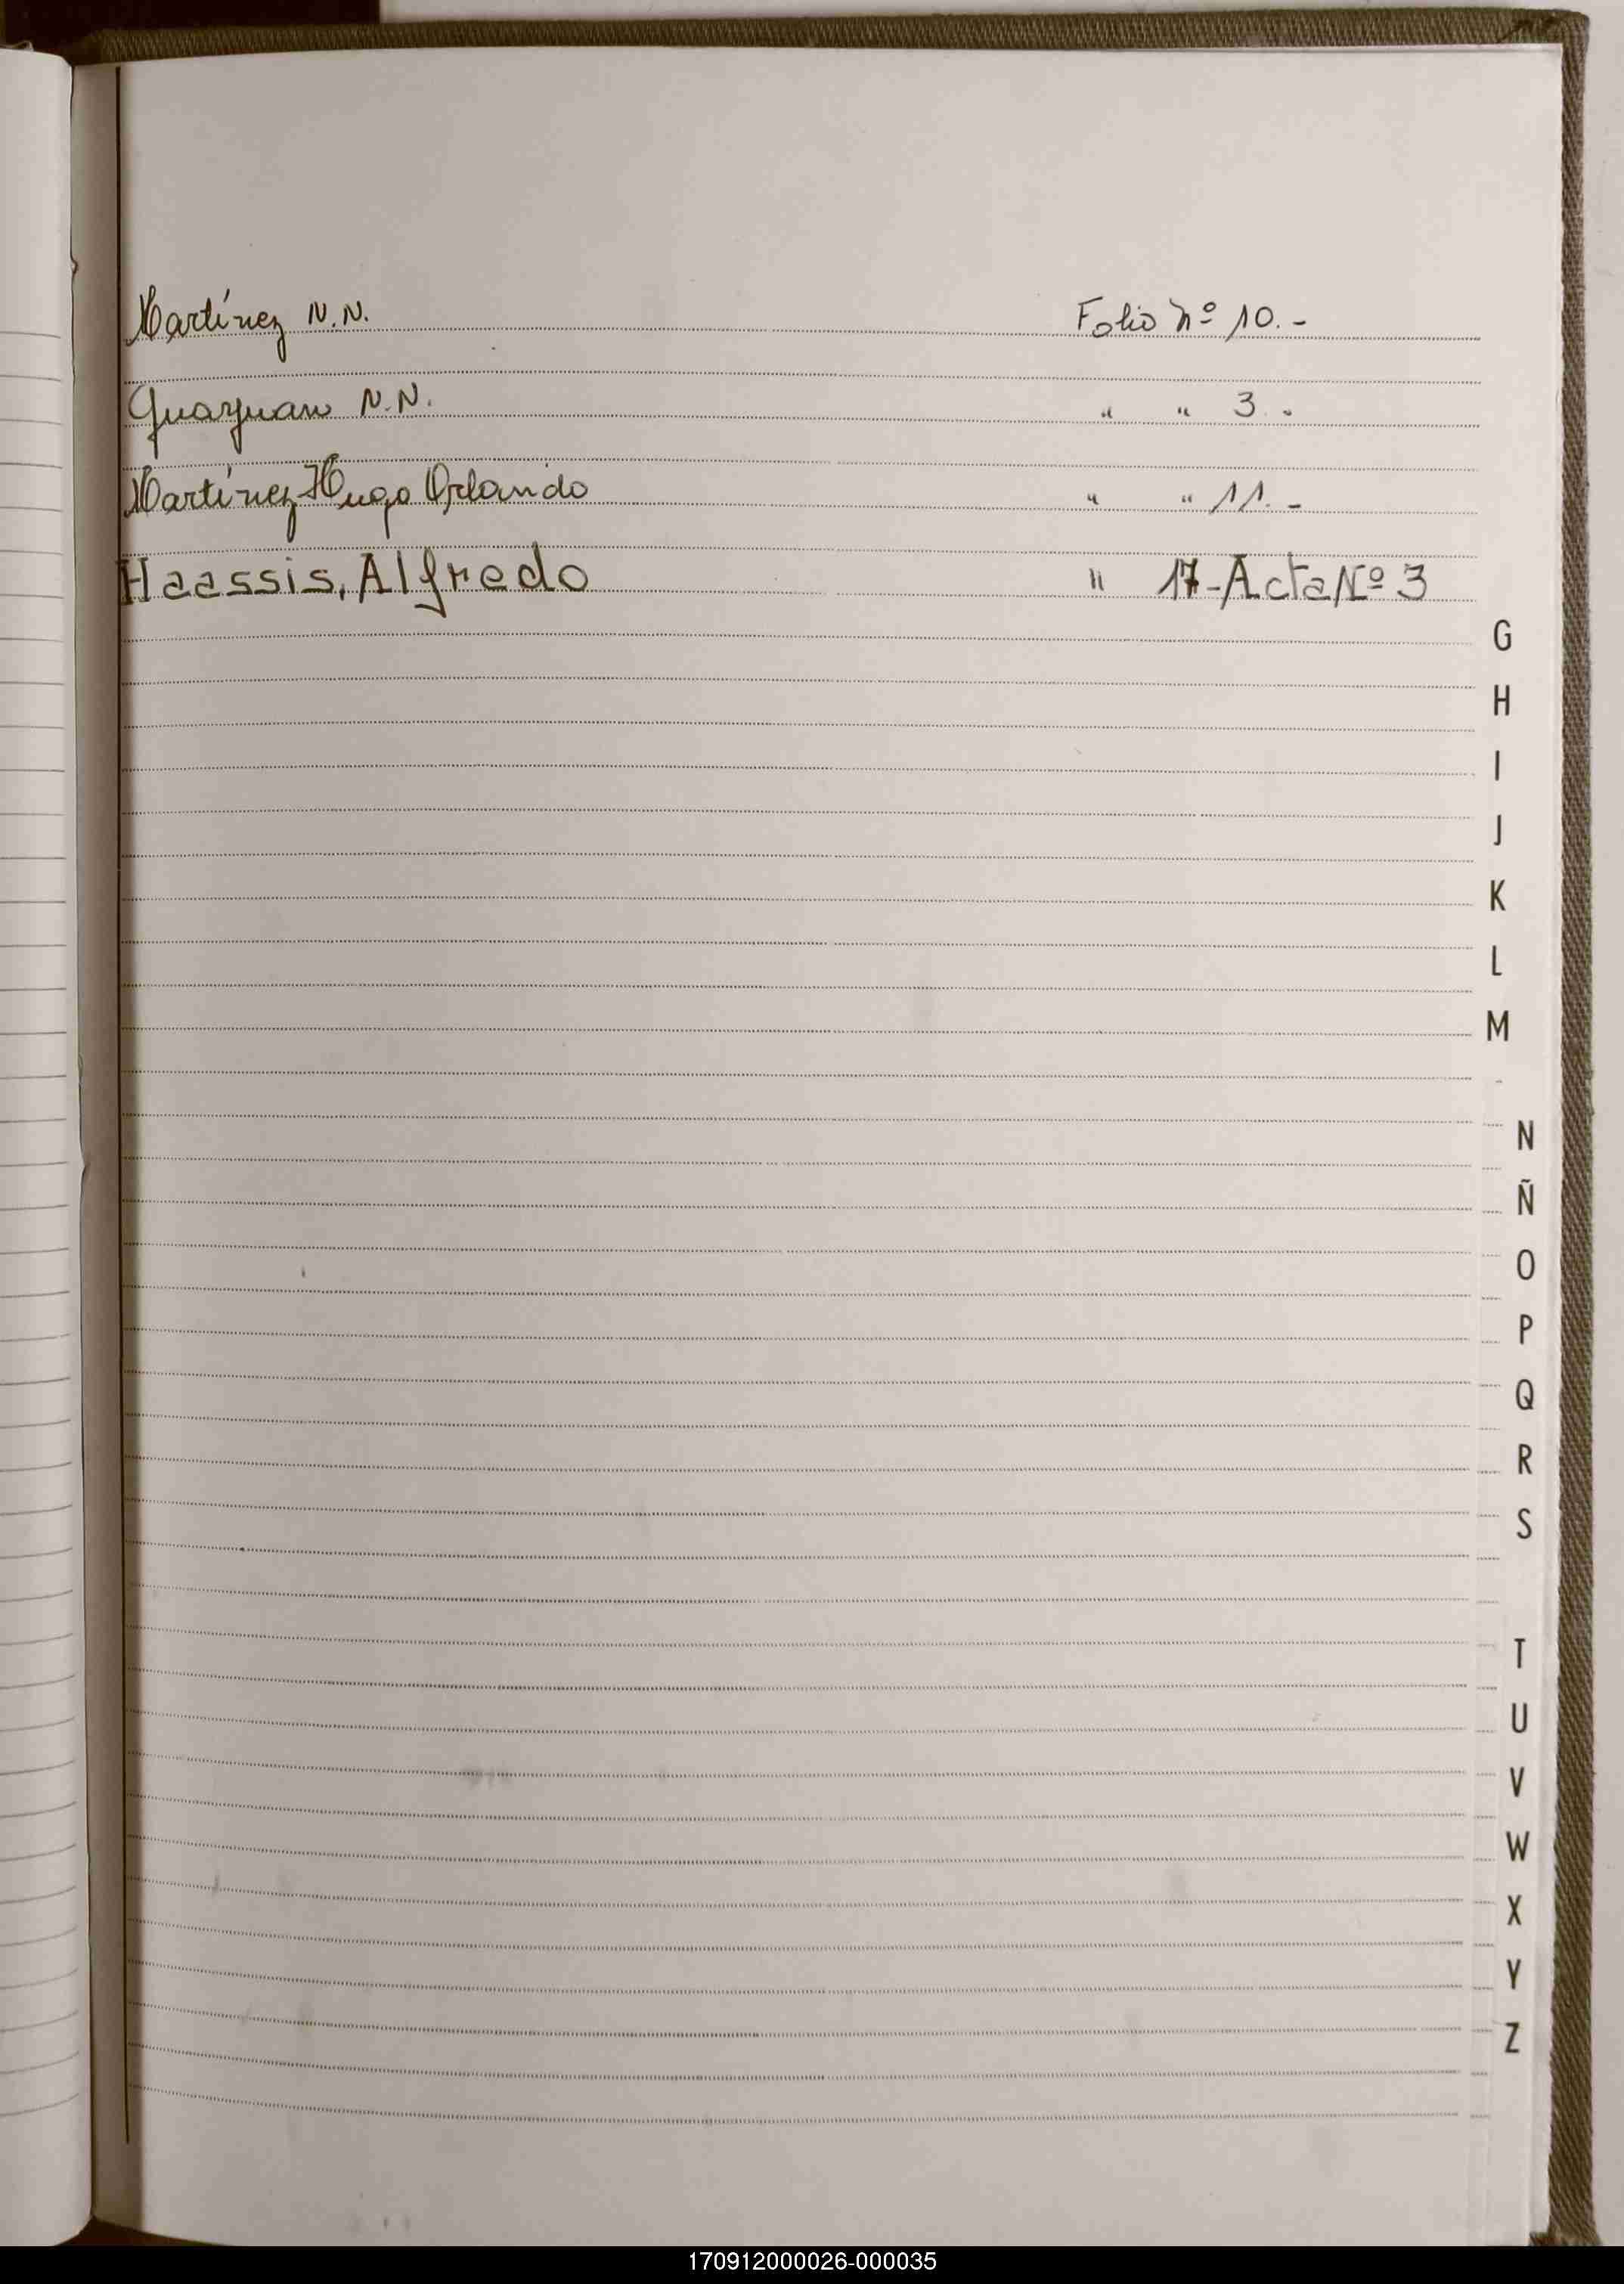 Martínez N.N. Folio Nº 10.-
Guayuan N.N. " " 3.-
Martínez Hugo Orlando " " 11.-
Haassis, Alfredo " 17-Acta Nº 3
G
H
I
J
K
L
M
N
Ñ
O
P
Q
R
S
T
U
V
W
X
Y
Z
170912000026-000035